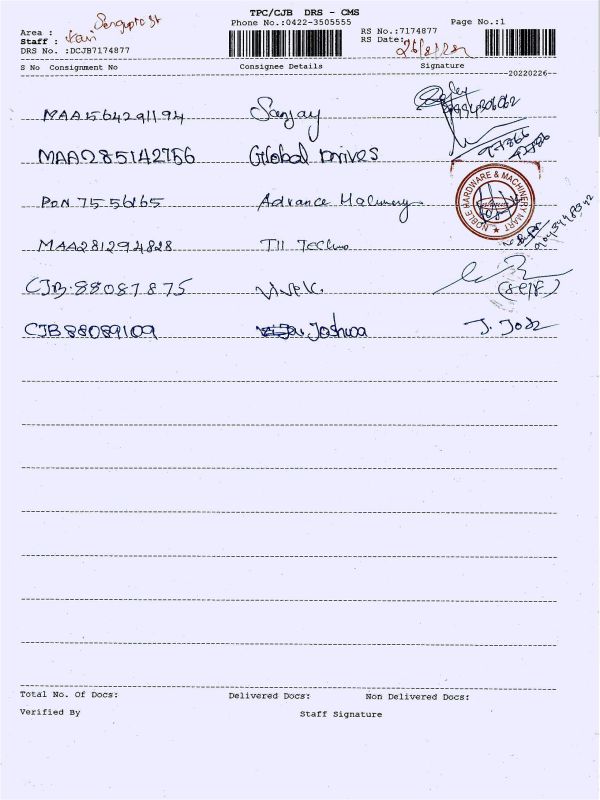 TPC/CJB DRS - CMS
Phone No.:0422-3505555
Page No.:1
Area : Sengupta St
Staff : Ravi
RS No.:7174877
RS Date:
DRS No. :DCJB7174877
S No Consignment No Consignee Details Signature
20220226
MAA1564291194 Sanjay
MAA285142756 Global Drives
PON 7556165 Advance Machinery
MAA281294828 TII Techno
CJB.88087875 Vivek.
(self)
CJB88089109 Joshua
NOBLE HARDWARE & MACHINERY MART
Total No. Of Docs: Delivered Docs: Non Delivered Docs:
Verified By Staff Signature